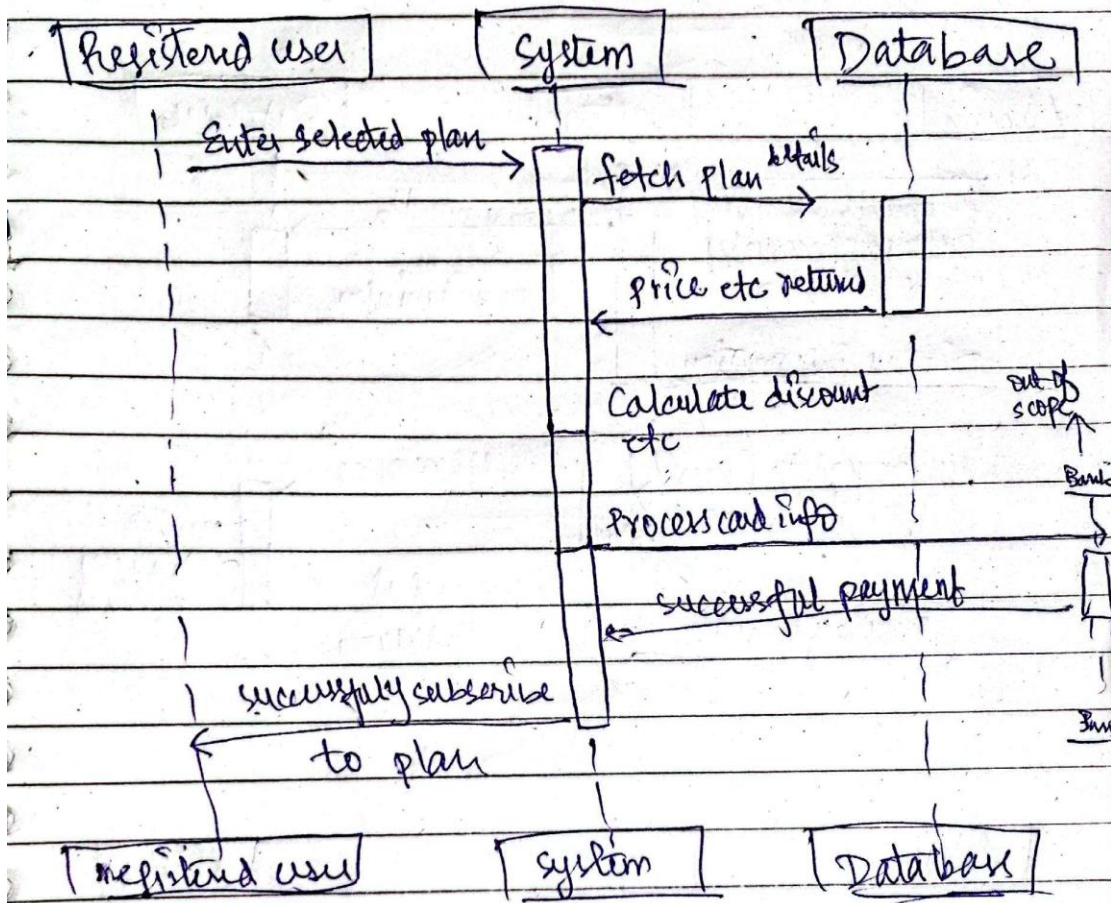 Registered user
System
Database
Enter selected plan
fetch plan details
price etc returns
Calculate discount
etc
out of
scope
Bank
Process card info
successful payment
successfuly subscribe
to plan
registered user
system
Database